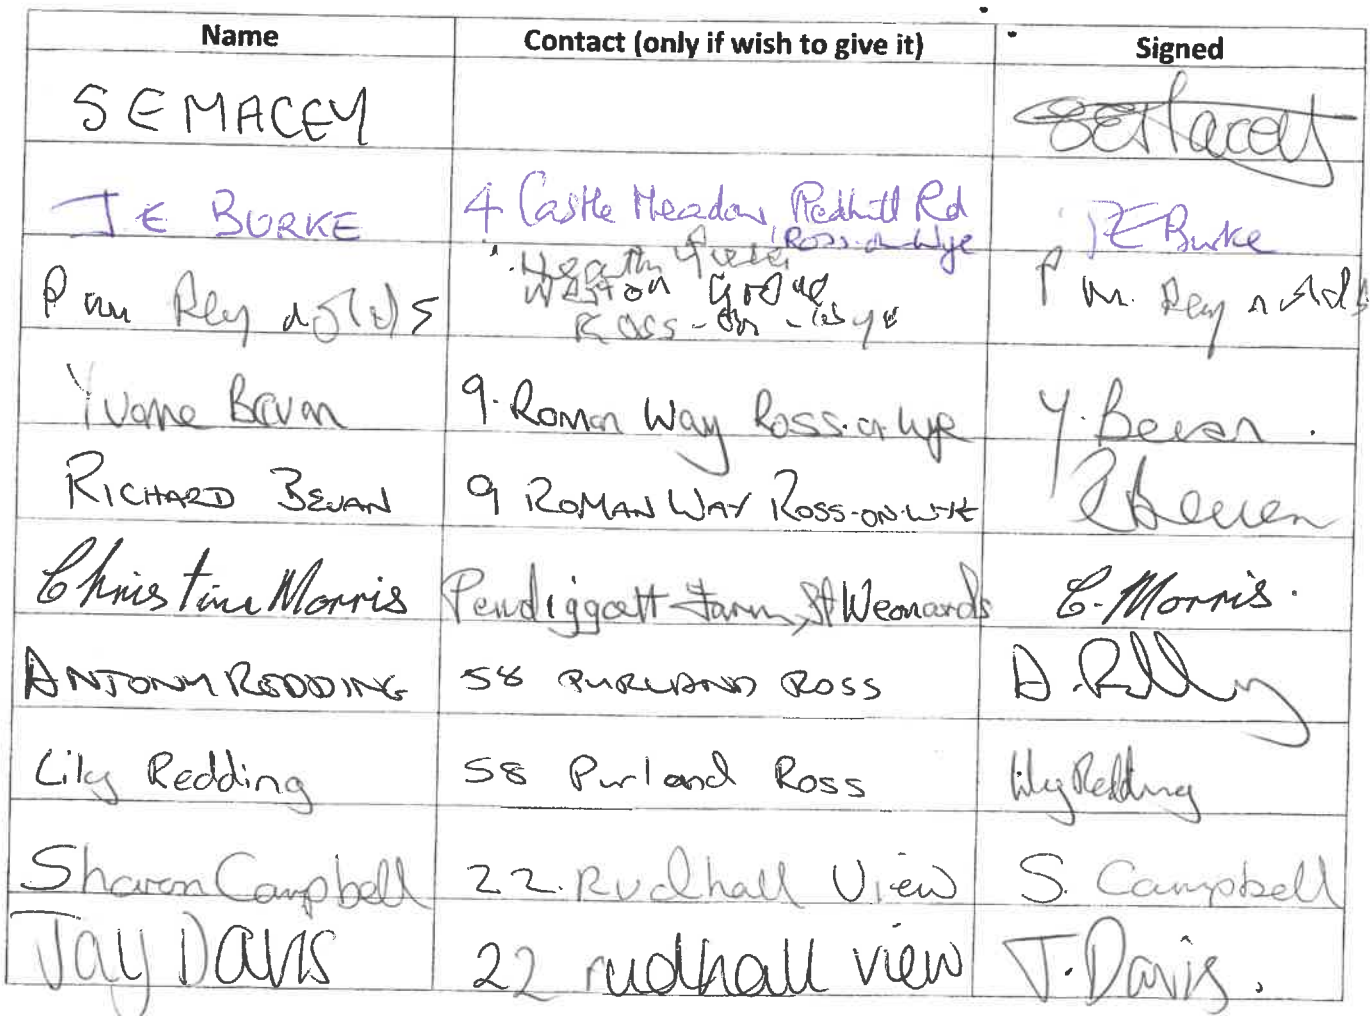 Name Contact (only if wish to give it) Signed
S E MACEY SEMacey
J E BURKE 4 Castle Meadow, Redhill Rd J E Burke
Ross-on-Wye
P m Reynolds Heathfield P m. Reynolds
Weston
Ross-on-Wye
Yvonne Bevan 9. Roman Way Ross-on-Wye Y. Bevan.
RICHARD BEVAN 9 ROMAN WAY ROSS-ON-WYE R Bevan
Christine Morris Pendiggott Farm, St Weonards C. Morris.
ANTONY REDDING 58 PURLAND ROSS A.
Lily Redding 58 Purland Ross Lily Redding
Sharon Campbell 22. Rudhall View S. Campbell
Jay Davis 22 rudhall view J. Davis.